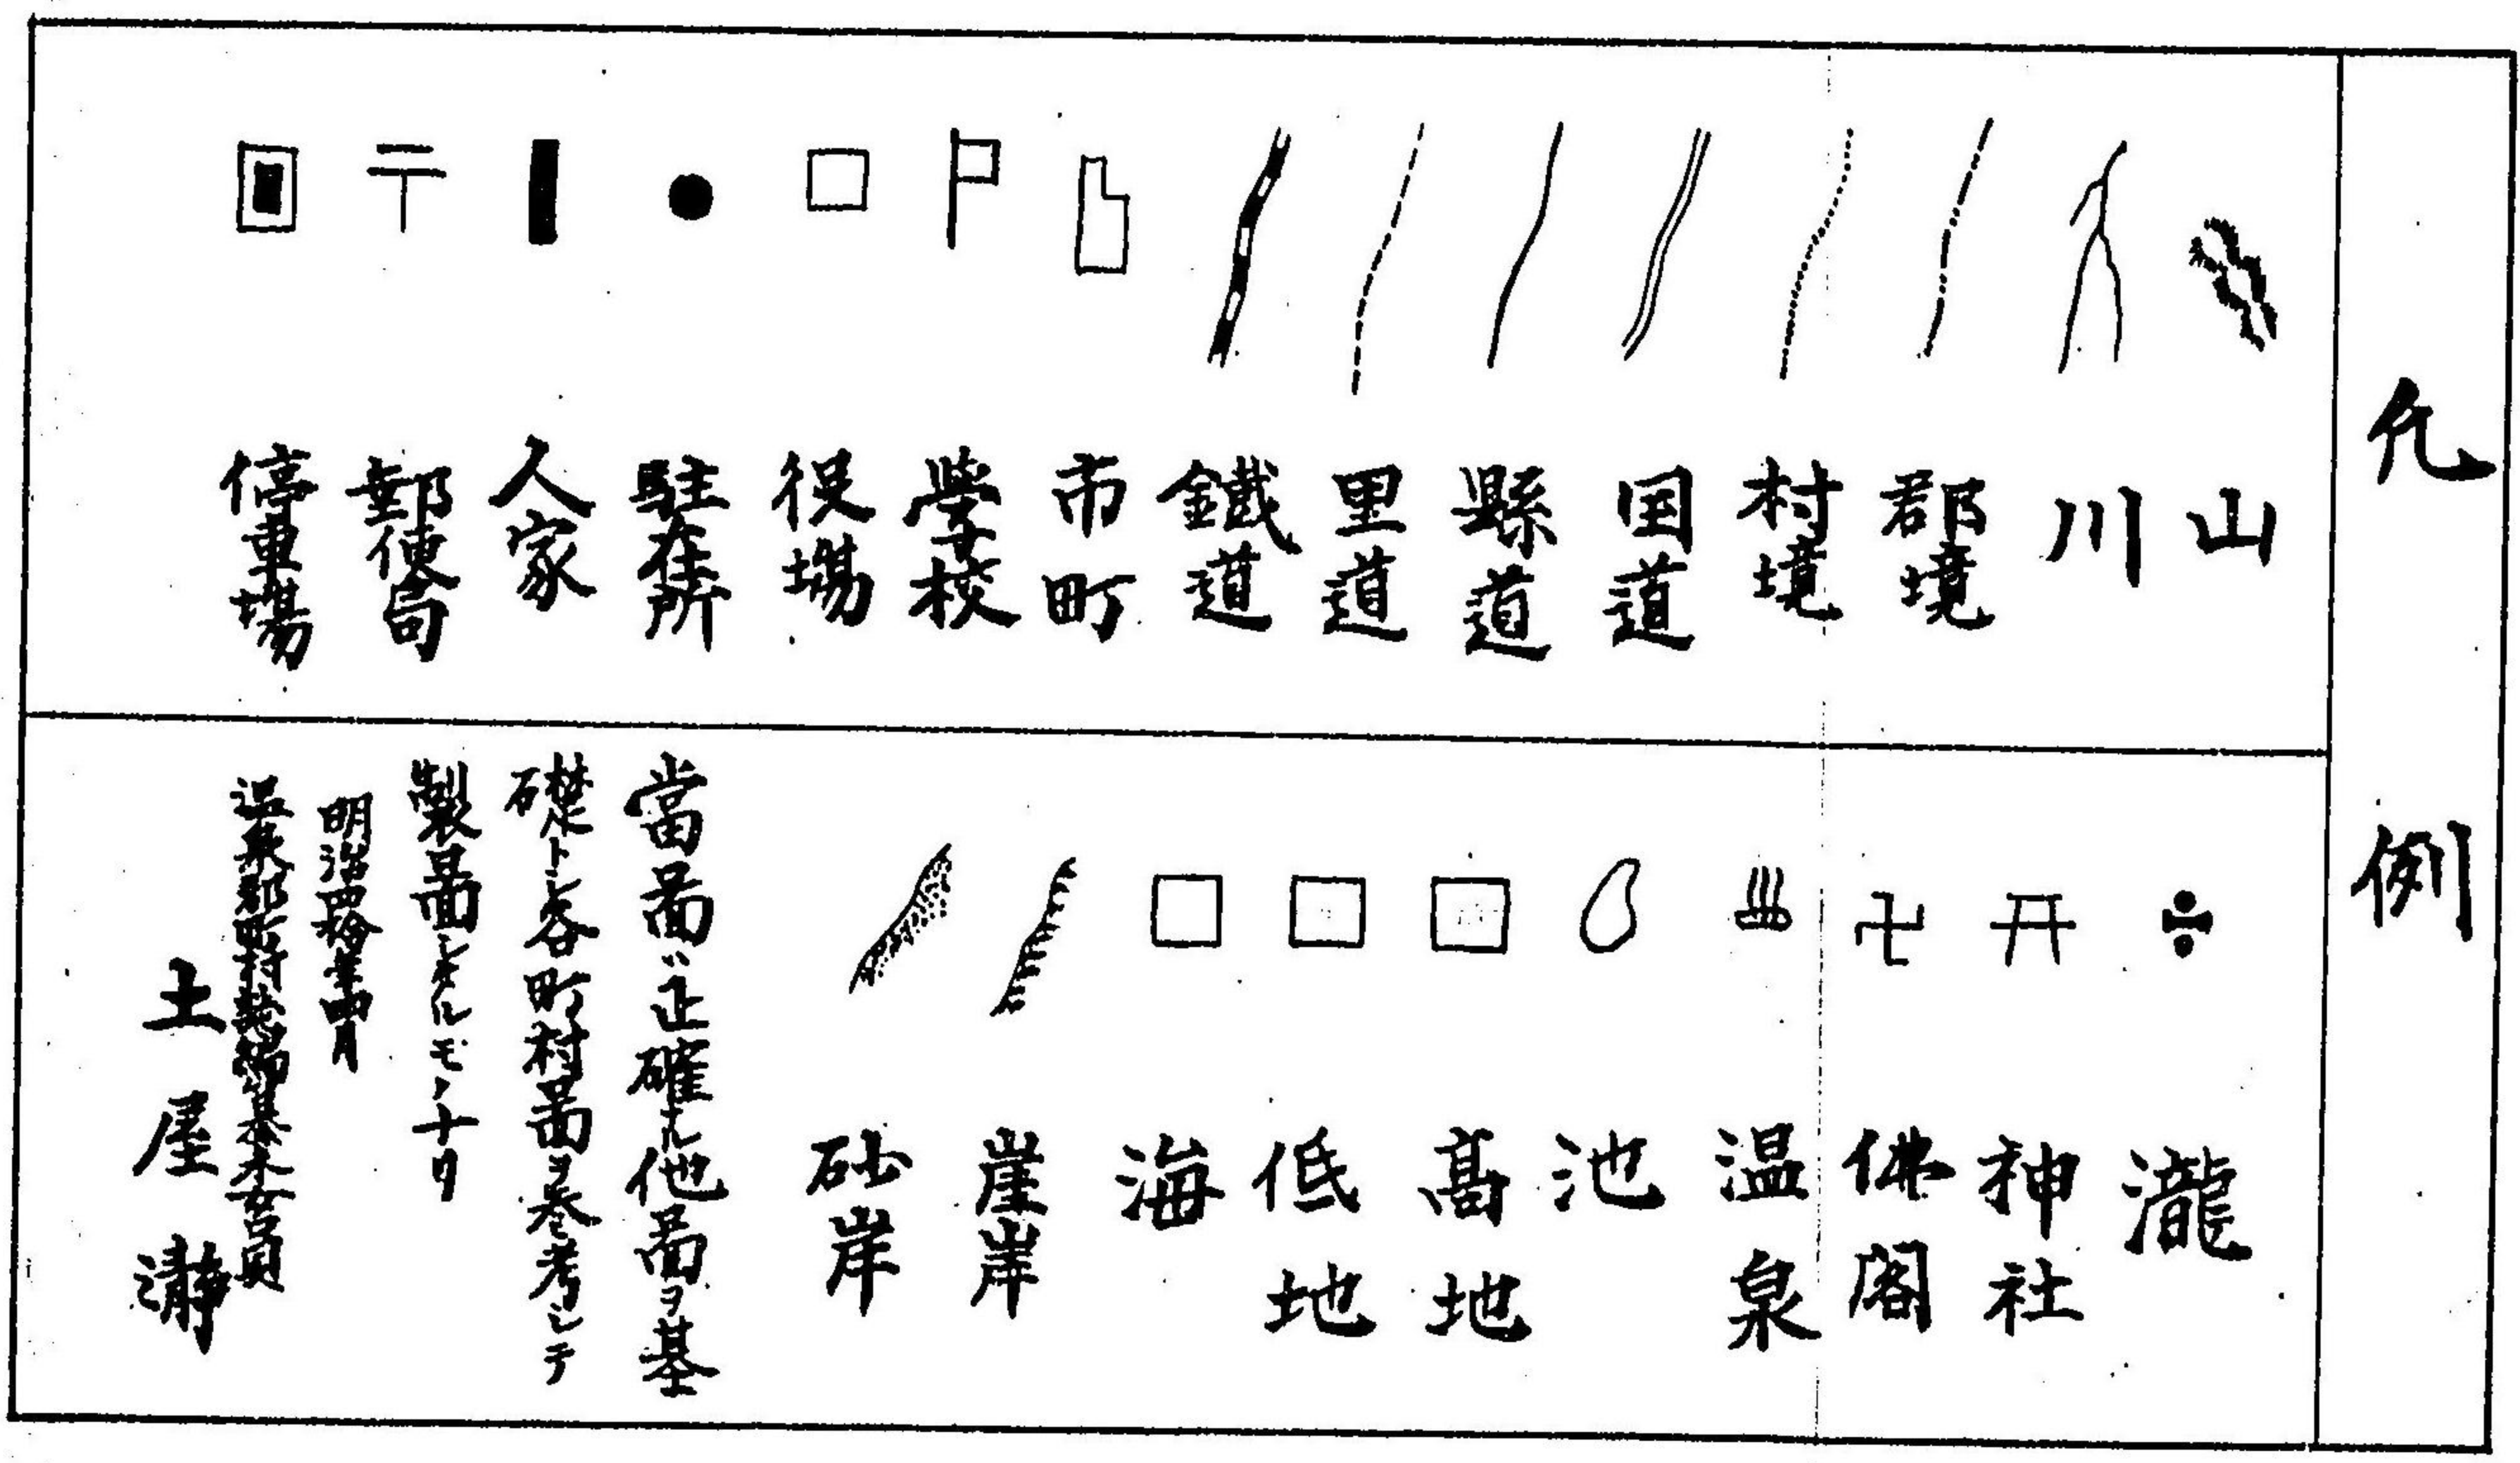 凡例
山
川
郡境
村境
国道
縣道
里道
鐵道
市町
學校
役場
駐在所
人家
郵便局
停車場
瀧
神社
佛閣
温泉
池
高地
低地
海
崖岸
砂岸
當圖ハ正確ナル他圖ヲ基
礎トシ各町村圖ヲ参考シテ
製圖シタルモノナリ
明治四拾年四月
温泉郡町村誌編
土屋瀞